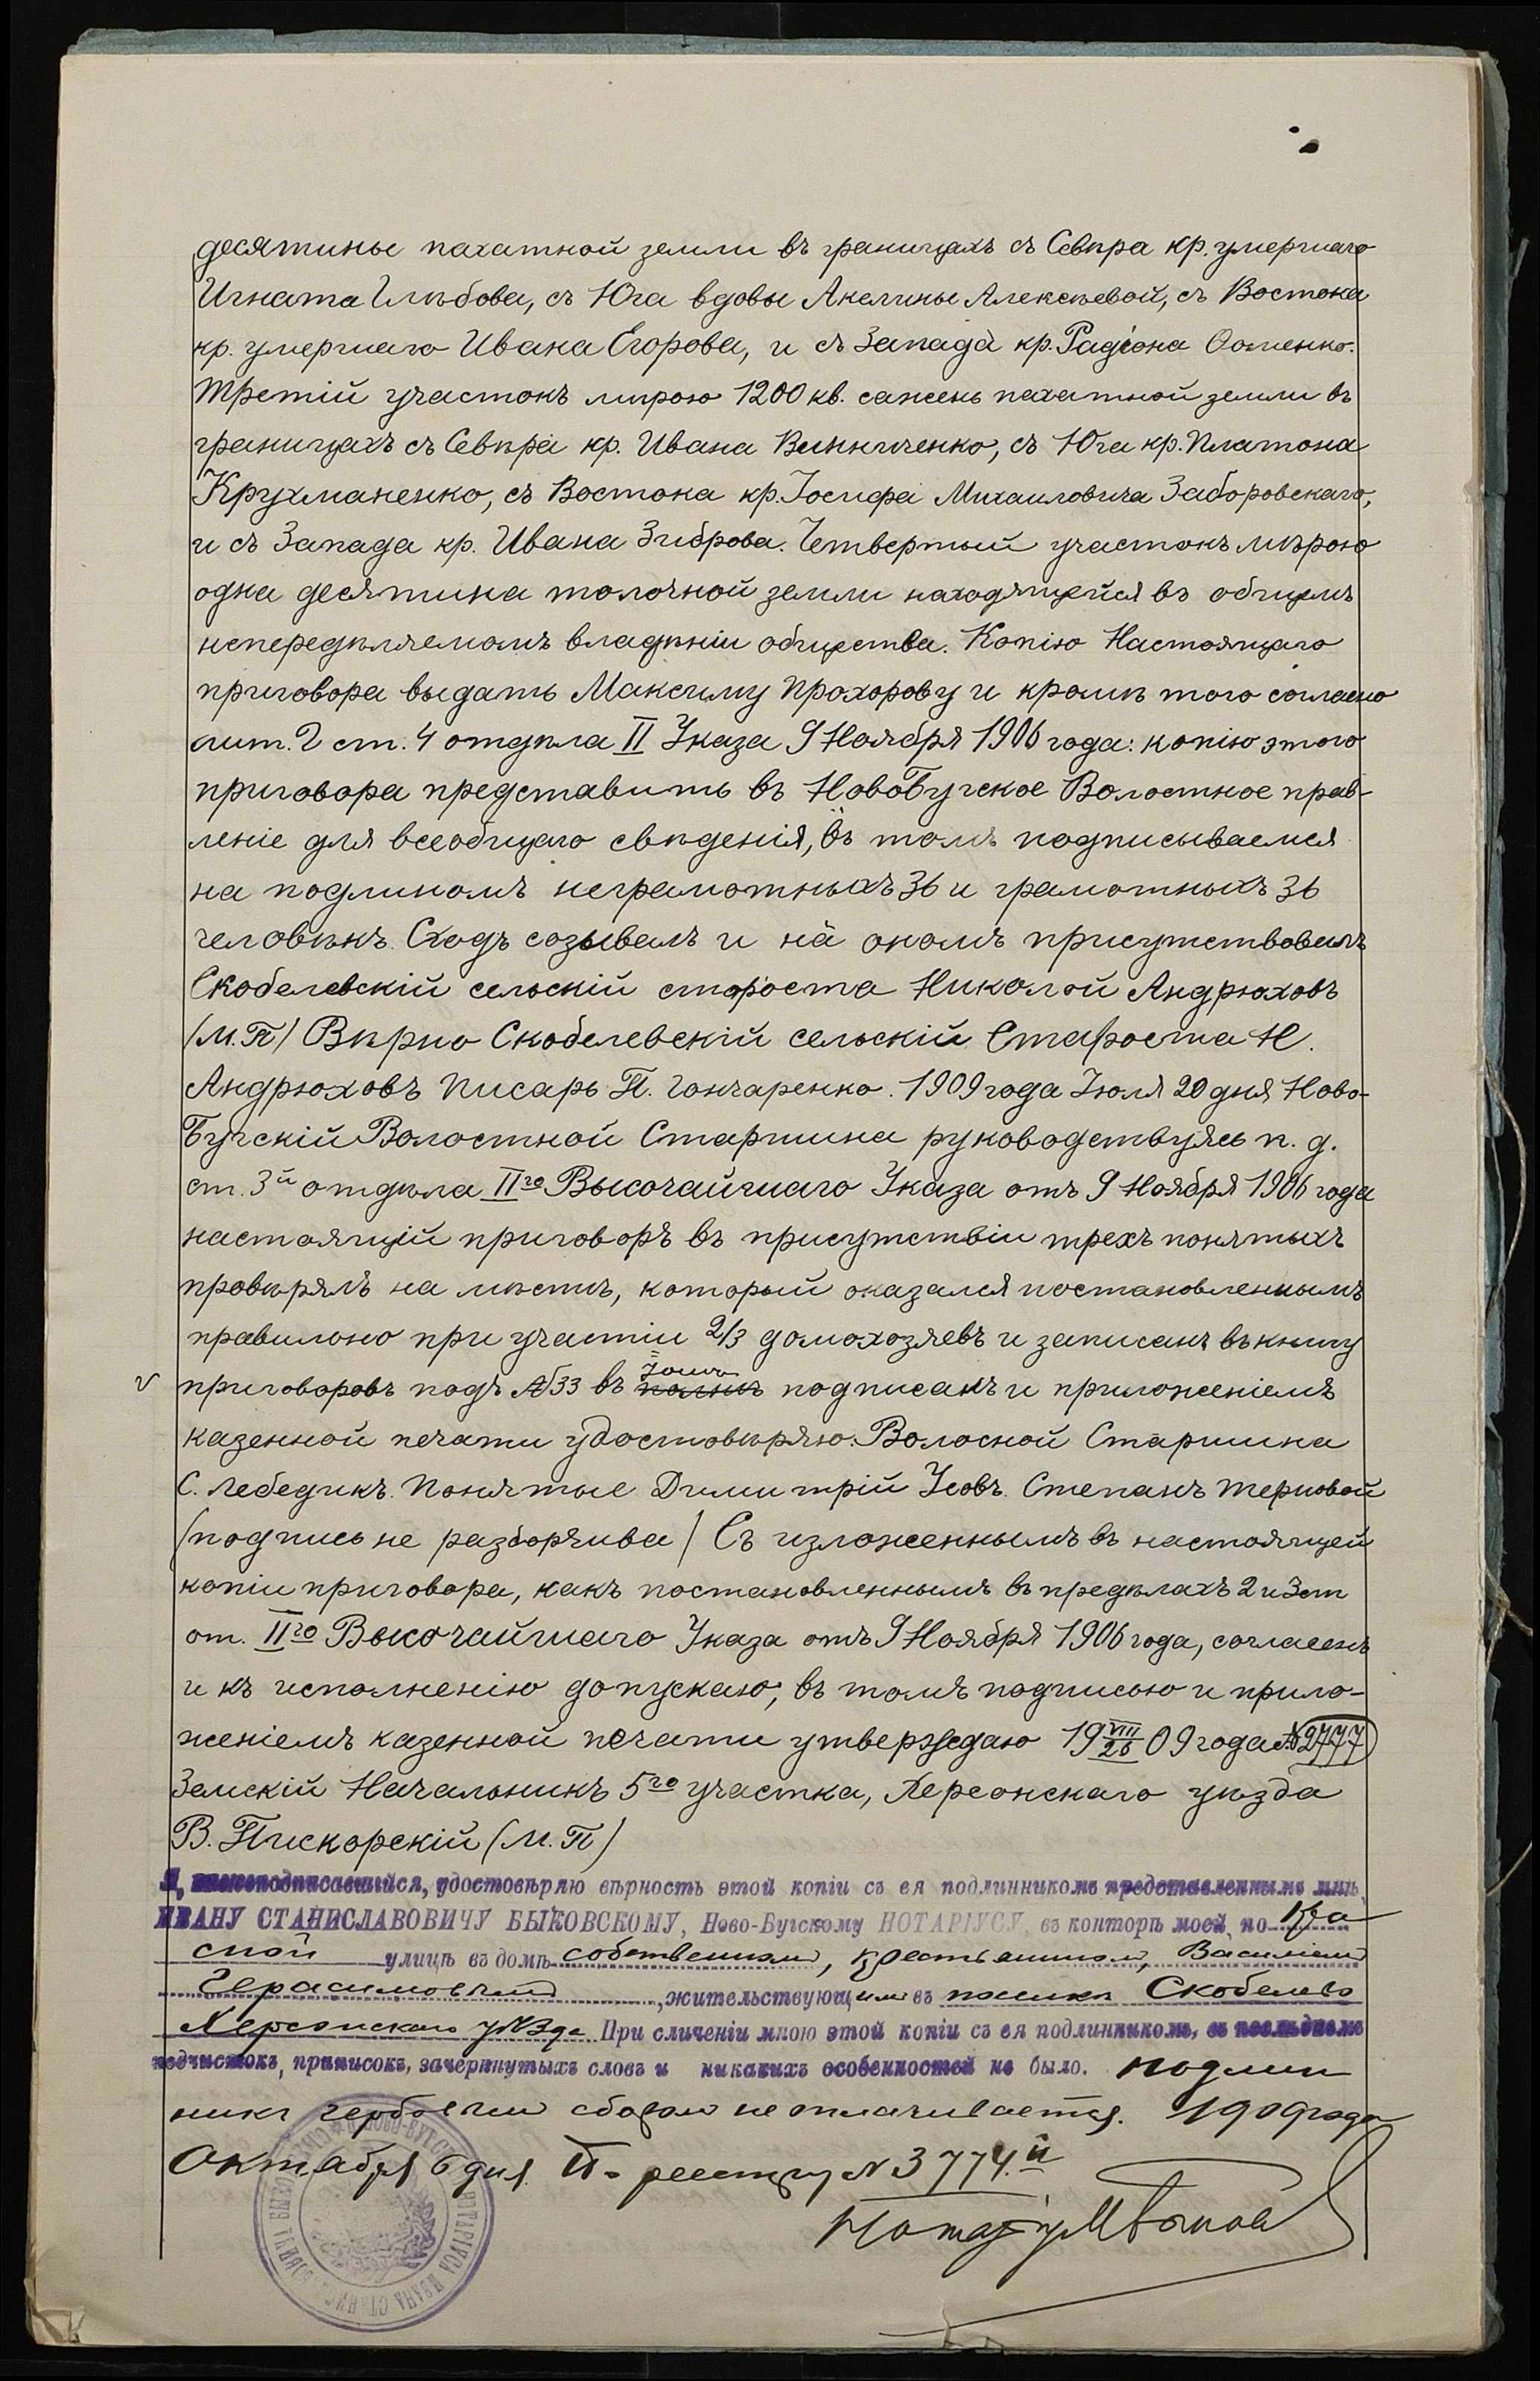 десятины пахатной земли въ границахъ съ Сѣвѣра кр. умершаго
Игната Глѣбова, съ Юга вдовы Акелины Алексѣевой, съ Востока
кр. умершаго Ивана Егорова, и съ Запада кр. Радіона
Третій участокъ мѣрою 1200 кв. сажень пахатной земли въ
границахъ съ Сѣвѣра кр. Ивана Винниченко, съ Юга кр. Платона
Крухманенко, съ Востока кр. Іосифа Михаиловича Заборовскаго,
и съ Запада кр. Ивана Зиброва. Четвертый участокъ мѣрою
одна десятина толочной земли находящейся въ общемъ
непередѣляемомъ владѣніи общества. Копію Настоящаго
приговора выдать Максиму Прохорову и кромѣ того согласно
лит. Г ст. 4 отдѣла II Указа 9 Ноября 1906 года: копію этого
приговора представить въ НовоБугское Волостное прав-
леніе для всеобщаго свѣденія, въ томъ подписываемся
на подлиномъ неграмотныхъ 36 и грамотныхъ 36
человѣкъ. Сходъ созывалъ и на ономъ присутствовалъ
Скобелевскій сельскій староста Николай Андрюховъ
(М.П) Вѣрно Скобелевскій сельскій Староста Н.
Андрюховъ Писарь П. Гончаренко. 1909 года Іюля 20 дня Ново-
Бугскій Волостной Старшина руководствуясь п. д.
ст. 3й отдѣла IIго Высочайшаго Указа отъ 9 Ноября 1906 года
настоящій приговоръ въ присутствіи трехъ понятыхъ
провѣрялъ на мѣстѣ, который оказался постановленнымъ
правильно при участіи 2/3 домохозяевъ и записанъ въ книгу
приговоровъ подъ №33 въ подписакъ и приложеніемъ
казенной печати удостовѣряю. Волосной Старшина
С. Лебедикъ. Понятые Димитрій Усовъ. Степанъ Терновой
(подпись не разборчива) Съ изложеннымъ въ настоящей
копіи приговора, какъ постановленнымъ въ предѣлахъ 2 и 3 ст
от. IIго Высочайшаго Указа отъ 9 Ноября 1906 года, согласенъ
и къ исполненію допускаю, въ томъ подписью и прило-
женіемъ казенной печати утверждаю 19 VIII/26 09 года №2777
Земскій Начальникъ 5го участка, Херсонскаго уѣзда
В. Пискорскій (М.П)
Я, нижеподписавшійся, удостовѣряю вѣрность этой копіи съ ея подлинникомъ представленнымъ мнѣ,
ИВАНУ СТАНИСЛАВОВИЧУ БЫКОВСКОМУ, Ново-Бугскому НОТАРІУСУ, въ конторѣ моей, по Кра
сной улицѣ въ домѣ собственномъ, крестьяниномъ, Василіемъ
Герасимовымъ, жительствующимъ въ поселкѣ Скобелево
Херсонскаго уѣзда При сличеніи мною этой копіи съ ея подлинникомъ, въ послѣднемъ
подчистокъ, приписокъ, зачеркнутыхъ словъ и никакихъ особенностей не было. Подлин
никъ гербовымъ сборомъ не оплачивается. 1909 года
Октября 6 дня. По реестру N 3774й